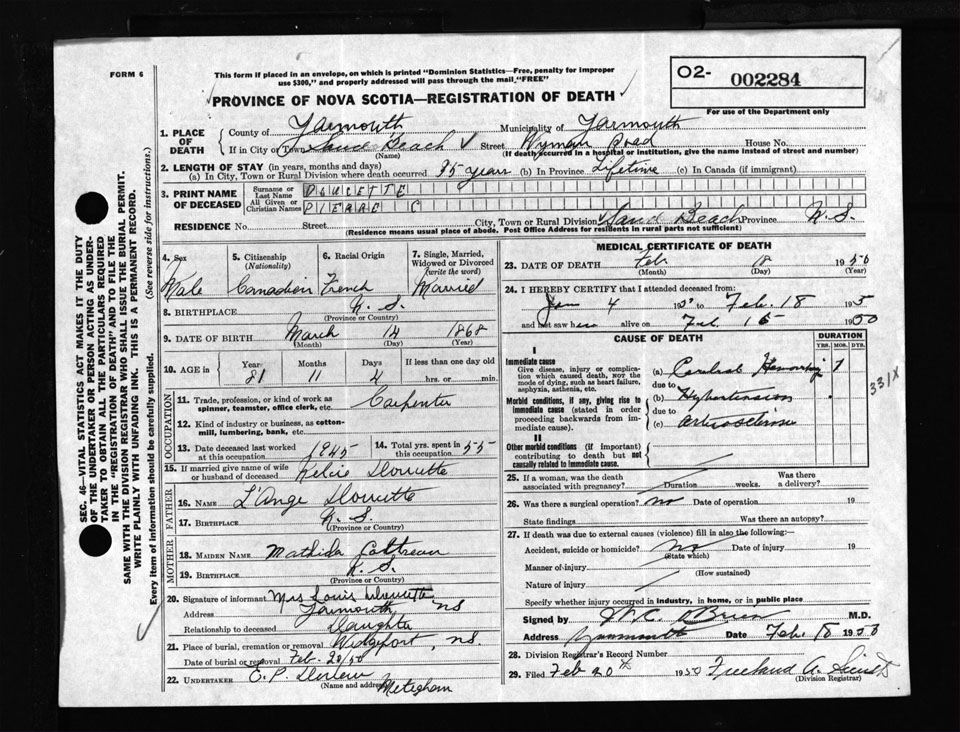 FORM 6
This form if placed in an envelope, on which is printed "Dominion Statistics—Free, penalty for improper
use $300," and properly addressed will pass through the mail "FREE"
O2- 002284
For use of the Department only
PROVINCE OF NOVA SCOTIA—REGISTRATION OF DEATH
1. PLACE OF DEATH
County of Yarmouth Municipality of Yarmouth
If in City or Town Sand Beach Street Wyman Road House No.
(Name) (If death occurred in a hospital or institution, give the name instead of street and number)
2. LENGTH OF STAY (in years, months and days)
(a) In City, Town or Rural Division where death occurred 35 years (b) In Province Lifetime (c) In Canada (if immigrant)
3. PRINT NAME OF DECEASED
Surname or Last Name DOUCETTE
All Given or Christian Names PIERRE C
RESIDENCE No. Street City, Town or Rural Division Sand Beach Province N.S.
(Residence means usual place of abode. Post Office Address for residents in rural parts not sufficient)
4. Sex Male
5. Citizenship (Nationality) Canadian
6. Racial Origin French
7. Single, Married, Widowed or Divorced (write the word) Married
8. BIRTHPLACE N.S.
(Province or Country)
9. DATE OF BIRTH March 14 1868
(Month) (Day) (Year)
10. AGE in Years 81 Months 11 Days 4 If less than one day old hrs. or min.
OCCUPATION
11. Trade, profession, or kind of work as spinner, teamster, office clerk, etc. Carpenter
12. Kind of industry or business, as cotton-mill, lumbering, bank, etc.
13. Date deceased last worked at this occupation 1945
14. Total yrs. spent in this occupation 55
15. If married give name of wife or husband of deceased Doucette
FATHER
16. NAME L'Ange Doucette
17. BIRTHPLACE N.S.
(Province or Country)
MOTHER
18. MAIDEN NAME Mathilda Cottreau
19. BIRTHPLACE N.S.
(Province or Country)
20. Signature of informant Mrs Louis Doucette
Address Yarmouth, NS
Relationship to deceased Daughter
21. Place of burial, cremation or removal Wedgeport, NS.
Date of burial or removal Feb. 20/50
22. UNDERTAKER E. P.
(Name and address) Meteghan
MEDICAL CERTIFICATE OF DEATH
23. DATE OF DEATH Feb. 18 1950
(Month) (Day) (Year)
24. I HEREBY CERTIFY that I attended deceased from:
Jan 4 195 to Feb. 18 195
and last saw h alive on Feb. 16 1950
CAUSE OF DEATH
DURATION
YRS. MOS. DYS.
I
Immediate cause
Give disease, injury or complication which caused death, NOT the mode of dying, such as heart failure, asphyxia, asthenia, etc.
(a) Cerebral Hemorrhage 1
due to
Morbid conditions, if any, giving rise to immediate cause (stated in order proceeding backwards from immediate cause).
(b) Hypertension
due to
(c) arteriosclerosis
331X
II
Other morbid conditions (if important) contributing to death but not causally related to immediate cause.
25. If a woman, was the death associated with pregnancy? Duration weeks. Was there a delivery?
26. Was there a surgical operation? no Date of operation 19
State findings Was there an autopsy?
27. If death was due to external causes (violence) fill in also the following:—
Accident, suicide or homicide? no Date of injury 19
(State which)
Manner of injury
(How sustained)
Nature of injury
Specify whether injury occurred in industry, in home, or in public place
Signed by W.C. O'Brien M.D.
Address Yarmouth Date Feb. 18 1950
28. Division Registrar's Record Number
29. Filed Feb 20th 1950 Freeland A.
(Division Registrar)
SEC. 46—VITAL STATISTICS ACT MAKES IT THE DUTY
OF THE UNDERTAKER OR PERSON ACTING AS UNDER-
TAKER TO OBTAIN ALL THE PARTICULARS REQUIRED
IN THE "REGISTRATION OF DEATH" AND TO FILE THE
SAME WITH THE DIVISION REGISTRAR WHO SHALL ISSUE THE BURIAL PERMIT.
WRITE PLAINLY WITH UNFADING INK. THIS IS A PERMANENT RECORD.
Every item of information should be carefully supplied. (See reverse side for instructions.)